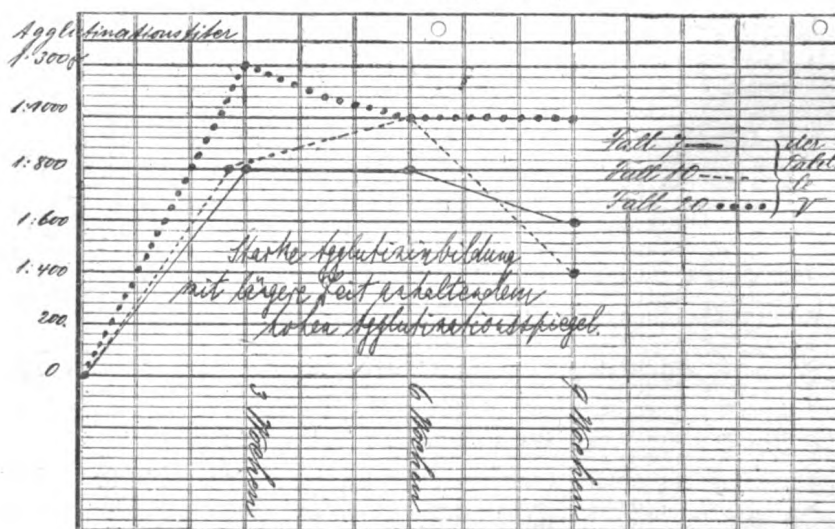 Agglutinationstiter
1:3000
1:1000
1:800
1:600
1:400
200.
0
Fall 7
Fall 10
Fall 20
der
V
Starke Agglutininbildung
mit längere Zeit anhaltendem
hohen Agglutinationsspiegel.
3 Wochen
6 Wochen
9 Wochen